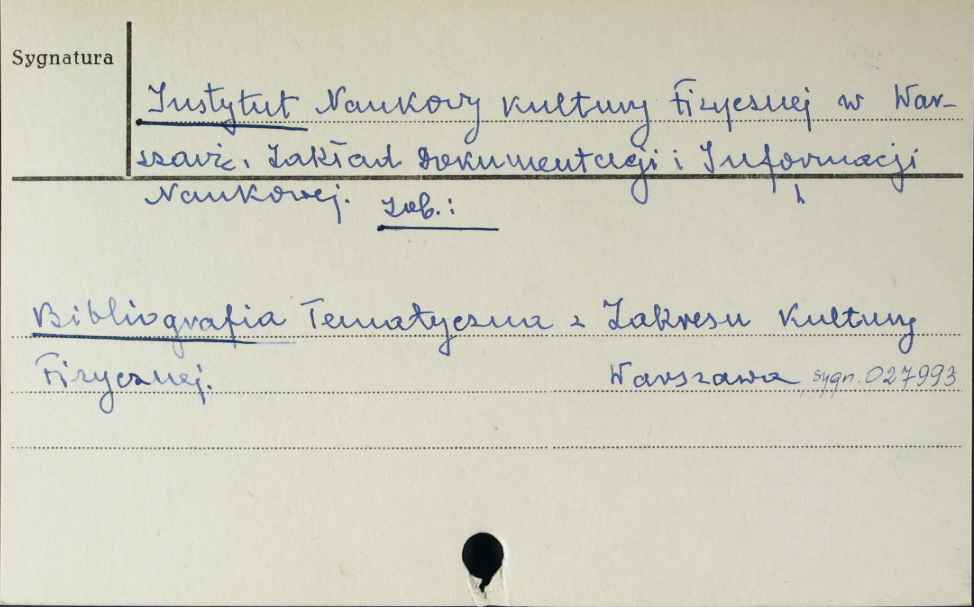 Sygnatura
Instytut Naukowy Kultury Fizycznej w War-
szawie. Zakład Dokumentacji i Informacji
Naukowej. Zob.:
Bibliografia Tematyczna z Zakresu Kultury
Fizycznej. Warszawa sygn. 027993